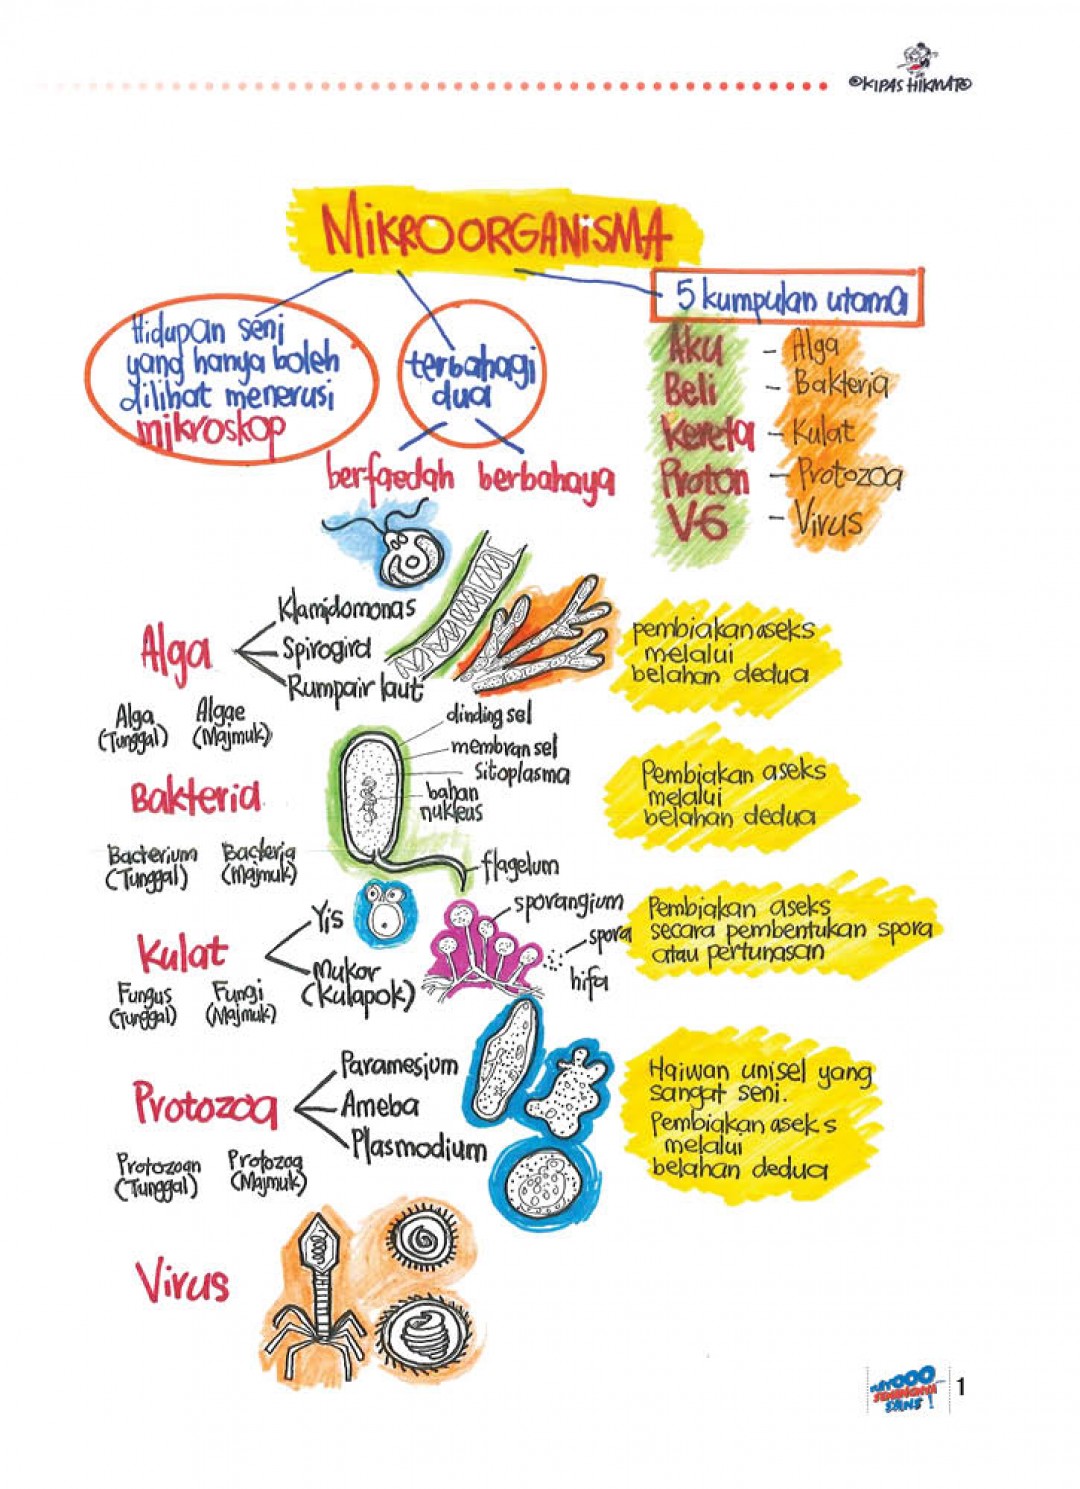 ©KIPAS HIKMAT©
MIKROORGANISMA
5 kumpulan utama
Hidupan seni
yang hanya boleh
dilihat menerusi
mikroskop
terbahagi
dua
berfaedah berbahaya
Aku - Alga
Beli - Bakteria
Kereta - Kulat
Proton - Protozoa
V-6 - Virus
Alga
Klamidomonas
Spirogira
Rumpair laut
Alga
(Tunggal)
Algae
(Majmuk)
pembiakan aseks
melalui
belahan dedua
Bakteria
dinding sel
membran sel
sitoplasma
bahan
nukleus
flagelum
Bacterium
(Tunggal)
Bacteria
(Majmuk)
Pembiakan aseks
melalui
belahan dedua
Kulat
Yis
Mukor
(Kulapok)
sporangium
spora
hifa
Fungus
(Tunggal)
Fungi
(Majmuk)
Pembiakan aseks
secara pembentukan spora
atau pertunasan
Protozoa
Paramesium
Ameba
Plasmodium
Protozoan
(Tunggal)
Protozoa
(Majmuk)
Haiwan unisel yang
sangat seni.
Pembiakan aseks
melalui
belahan dedua
Virus
SAINS!
1